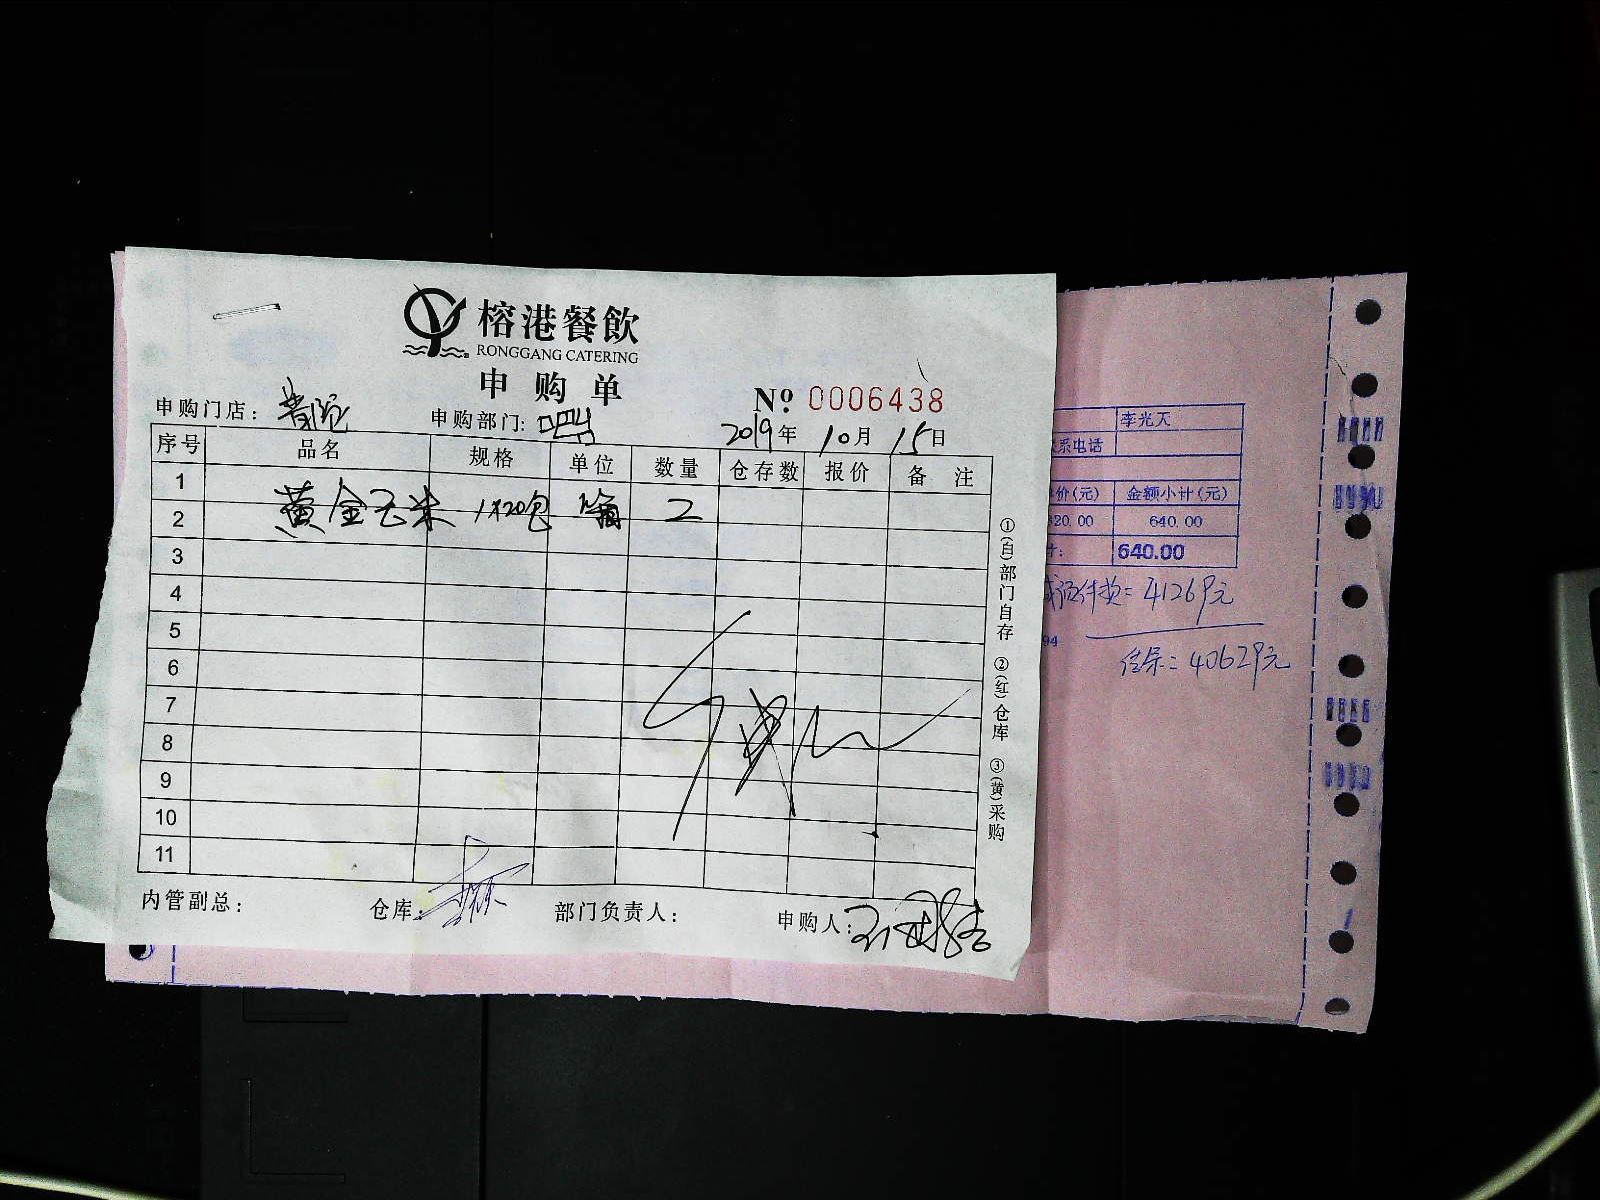 榕港餐飲
RONGGANG CATERING
申购单
No. 0006438
申购门店：
申购部门：吧
2019年 10月 15日
序号 品名 规格 单位 数量 仓存数 报价 备注
1
2 黄金玉米 1X20包 箱 2
3
4
5
6
7
8
9
10
11
①(白)部门自存 ②(红)仓库 ③(黄)采购
内管副总： 仓库： 部门负责人： 申购人：
李光天
系电话
价(元) 金额小计(元)
20.00 640.00
计： 640.00
件类=41269元
94
结余=40629元